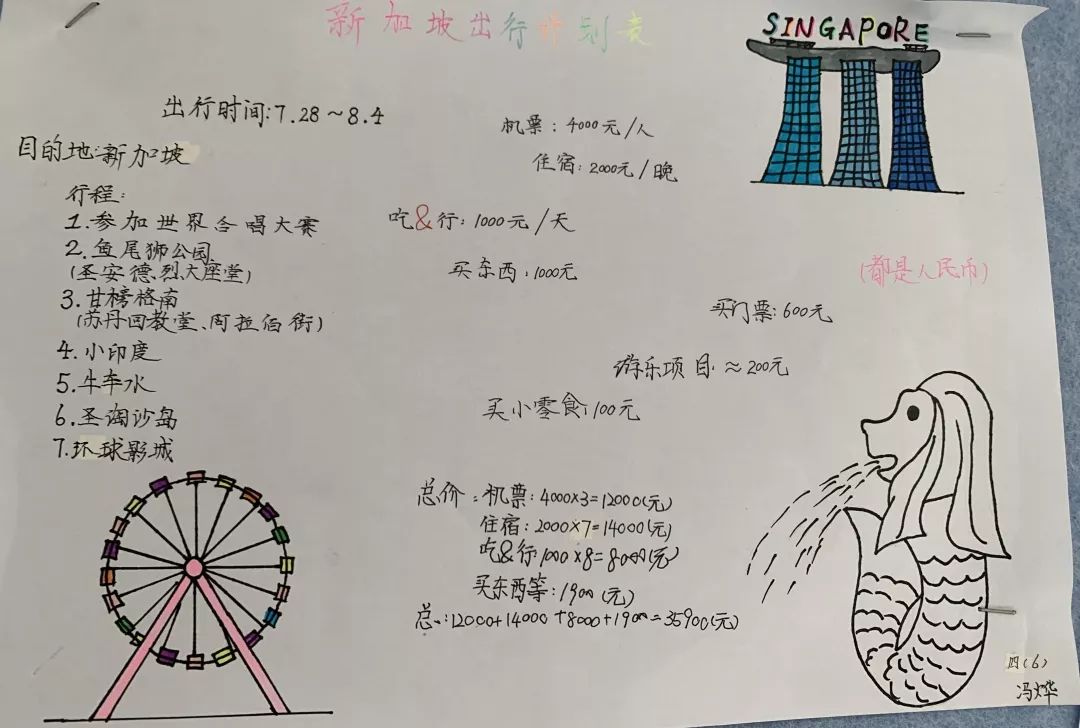 新加坡出行计划表
SINGAPORE
出行时间:7.28~8.4
目的地:新加坡
行程:
1.参加世界合唱大赛
2.鱼尾狮公园
(圣安德烈大座堂)
3.甘榜格南
(苏丹回教堂、阿拉伯街)
4.小印度
5.牛车水
6.圣淘沙岛
7.环球影城
机票:4000元/人
住宿:2000元/晚
吃&行:1000元/天
买东西:1000元
(都是人民币)
买门票:600元
游乐项目≈200元
买小零食:100元
总价:机票:4000×3=12000(元)
住宿:2000×7=14000(元)
吃&行:1000×8=8000(元)
买东西等:1900(元)
总:12000+14000+8000+1900=35900(元)
四(6)
冯烨